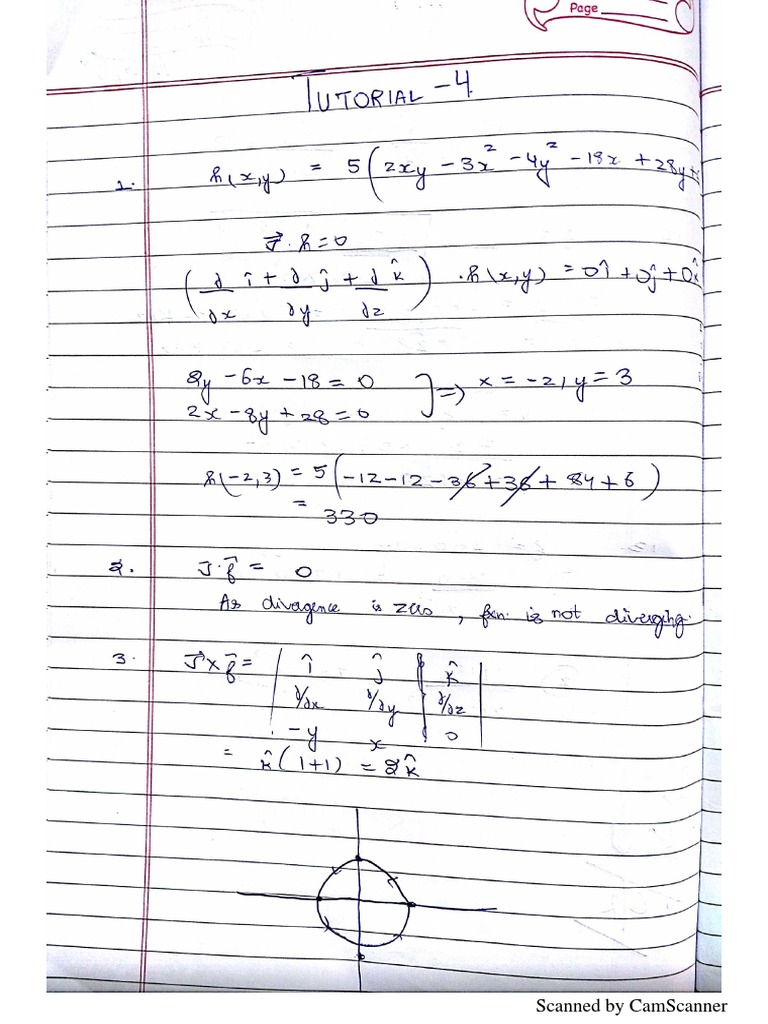 Page
TUTORIAL - 4
1. h(x,y) = 5(2xy - 3x² - 4y² - 18x + 28y +
∇⃗.h = 0
(∂/∂x î + ∂/∂y ĵ + ∂/∂z k̂) .h(x,y) = 0î + 0ĵ + 0k̂
2y - 6x - 18 = 0 } => x = -2, y = 3
2x - 8y + 28 = 0
h(-2,3) = 5(-12 - 12 - 36 + 36 + 84 + 6)
= 330
2. ∇.f⃗ = 0
As divergence is zero, fxn. is not diverging.
3. ∇⃗×f⃗ = | î ĵ k̂ |
∂/∂x ∂/∂y ∂/∂z
-y x 0
= k̂(1+1) = 2k̂
Scanned by CamScanner